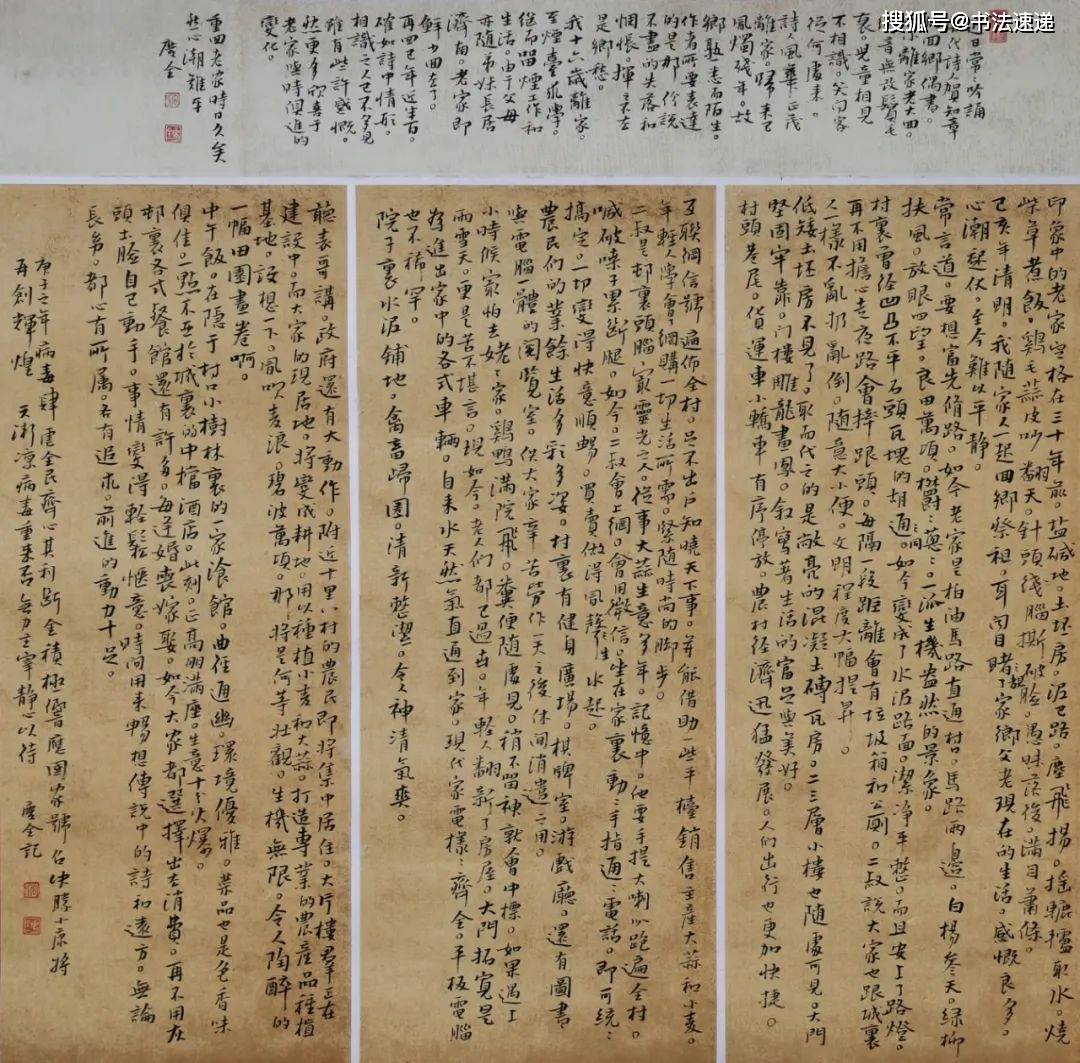 搜狐号@书法速递
日常吟誦
代詩人賀知章
回鄉偶書。
離家老大回。
音無改鬢毛
衰。兒童相見
不相識。笑問客
從何處來。
詩人風華正茂
離家。歸来已
風燭殘年。故
鄉熟悉而陌生。
作者所要表達
的是那份說
不盡的失落和
惆悵。揮之不去
是鄉愁。
我十六歲離家。
至煙臺求學。
继而留煙工作和
生活。由于父母
亦随弟妹長居
濟南。老家即
鮮少回去了。
再回已年近半百。
確如詩中情形。
相識之人已不多見
雖有些許感慨。
然更多的喜于
老家與時俱進的
變化。
重回老家時日久矣
然心潮難平
慶全
印象中的老家定格在三十年前。盐碱地。土坯房。泥巴路。塵飛揚。摇轆轤取水。燒
柴草煮飯。鷄毛蒜皮吵翻天。針頭綫腦撕破臉。愚昧落後。滿目蕭條。
己亥年清明。我随家人一起回鄉祭祖。耳聞目睹了家鄉父老現在的生活。感慨良多。
心潮起伏。至今難以平静。
常言道。要想富先脩路。如今老家是柏油馬路直通村。馬路两邊。白楊参天。緑柳
扶風。放眼四望。良田萬頃。欝欝葱葱。一派生機盎然的景象。
村裏曾經凹凸不平石頭瓦塊的胡同。如今變成了水泥路面。潔净平整。而且安上了路燈。
再不用擔心走夜路會摔跟頭。每隔一段距離會有垃圾箱和公厠。二叔說大家也跟城裏
人一樣不亂扔亂倒。随意大小便。文明程度大幅提昇。
低矮土坯房不見了。取而代之的是敞亮的混凝土磚瓦房。二三層小樓也随處可見。大門
堅固牢靠。门樓雕龍畫鳳。叙寫著生活的富足與美好。
村頭巷尾。貨運車小轎車有序停放。農村經濟迅猛發展。人们出行也更加快捷。
互聯網信號遍佈全村。足不出户知曉天下事。并能借助一些平檯銷售主産大蒜和小麦。
年輕人學會網購一切生活所需。緊随時尚的脚步。
二叔是邨裏頭腦最靈光之人。從事大蒜生意多年。記憶中。他要手提大喇叭跑遍全村。
喊破嗓子累断腿。如今。二叔會上網。會用微信。坐在家裏。動動手指通通電話。即可统统
搞定。一切變得快意順暢。買賣做得風生水起。
農民们的業餘生活多彩多姿。村裏有健身廣場。棋牌室。游戲廳。還有圖書
與電腦一體的閲覧室。供大家辛苦勞作一天之後休閒消遣之用。
小時候最怕去姥姥家。鷄鴨滿院飛。糞便随處見。稍不留神就會中標。如果遇上
雨雪天。更是苦不堪言。現如今。老人们都已過去。年輕人翻新了房屋。大門拓寬是
為進出家中的各式車輛。自来水天然氣直通到家。現代家電樣樣齊全。平板電腦
也不稀罕。
院子裏水泥鋪地。禽畜歸圈。清新整潔。令人神清氣爽。
聽表哥講。政府還有大動作。附近十里八村的農民即將集中居住。大片樓羣正在
建設中。而大家的現居地。將變成耕地。用以種植小麦和大蒜。打造專業的農産品種植
基地。設想一下。風吹麦浪。碧波萬頃。那將是何等壮觀。生機無限。令人陶醉的
一幅田園畫卷啊。
中午飯。在隱于村口小樹林裏的一家飡館。曲径通幽。環境優雅。菜品也是色香味
俱佳。一點不亞於城裏的中檔酒店。此刻。正高朋滿座。生意十分火爆。
邨裏各式餐館還有許多。每逢婚喪嫁娶。如今大家都選擇出去消費。再不用灰
頭土臉自己動手。事情變得輕鬆愜意。時间用来暢想傳說中的詩和遠方。無論
長幼。都心有所属。各有追求。前進的動力十足。
庚子之年病毒肆虐全民齊心其利断金積極響應國家號召决勝小康將
再創輝煌 天漸凉病毒重来否無力主宰静心以待
慶全記